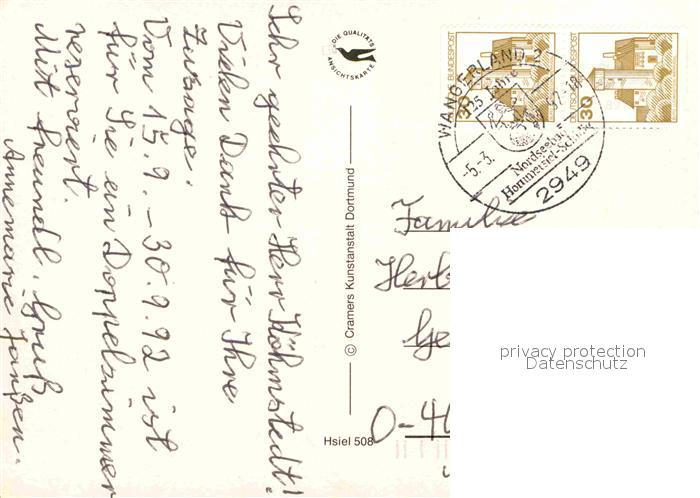 Sehr geehrter Herr Höhnstedt!
Vielen Dank für Ihre
Zusage.
Vom 15.9. – 30.9.92 ist
für Sie ein Doppelzimmer
reserviert.
Mit freundl. Gruß
Annemarie Janßen.
DIE QUALITÄTS
ANSICHTSKARTE
© Cramers Kunstanstalt Dortmund
Hsiel 508
DEUTSCHE BUNDESPOST
30
30
WANGERLAND 2
25 Jahre
-5.-3. 92-18
Nordseebad
Hooksiel-Schillig
2949
Familie
Herb
Ge
O-40
privacy protection
Datenschutz